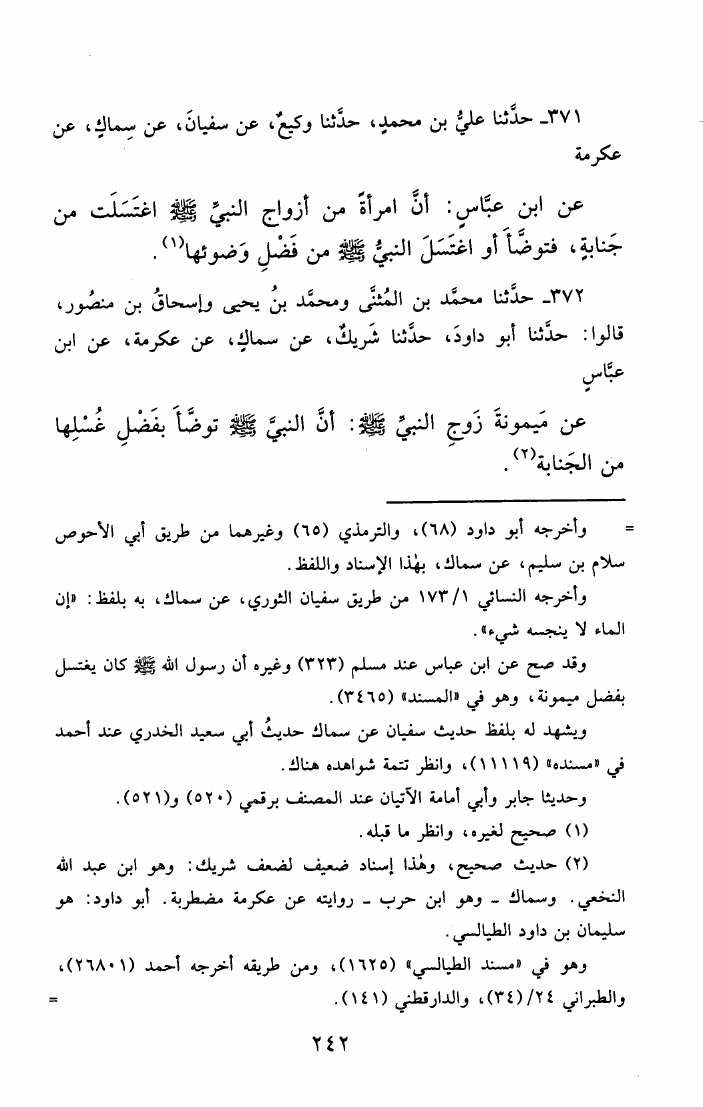 ٣٧١ـ حدَّثنا عليُّ بن محمدٍ، حدَّثنا وكيعٌ، عن سفيانَ، عن سِماكٍ، عن
عكرمة
عن ابن عبَّاسٍ: أنَّ امرأةً من أزواج النبيِّ ﷺ اغتَسَلَت من
جَنابةٍ، فتوضَّأَ أو اغتَسَلَ النبيُّ ﷺ من فَضْلِ وَضوئها(١).
٣٧٢ـ حدَّثنا محمَّد بن المُثنَّى ومحمَّد بنُ يحيى وإسحاقُ بن منصُور،
قالوا: حدَّثنا أبو داودَ، حدَّثنا شَريكٌ، عن سماكٍ، عن عكرمة، عن ابن
عبَّاسٍ
عن مَيمونةَ زَوجِ النبيِّ ﷺ: أنَّ النبيَّ ﷺ توضَّأَ بفَضْلِ غُسْلِها
من الجَنابة(٢).
= وأخرجه أبو داود (٦٨)، والترمذي (٦٥) وغيرهما من طريق أبي الأحوص
سلام بن سليم، عن سماك، بهٰذا الإسناد واللفظ.
وأخرجه النسائي ١٧٣/١ من طريق سفيان الثوري، عن سماك، به بلفظ: «إن
الماء لا ينجسه شيء».
وقد صح عن ابن عباس عند مسلم (٣٢٣) وغيره أن رسول الله ﷺ كان يغتسل
بفضل ميمونة، وهو في «المسند» (٣٤٦٥).
ويشهد له بلفظ حديث سفيان عن سماك حديثُ أبي سعيد الخدري عند أحمد
في «مسنده» (١١١١٩)، وانظر تتمة شواهده هناك.
وحديثا جابر وأبي أمامة الآتيان عند المصنف برقمي (٥٢٠) و(٥٢١).
(١) صحيح لغيره، وانظر ما قبله.
(٢) حديث صحيح، وهٰذا إسناد ضعيف لضعف شريك: وهو ابن عبد الله
النخعي. وسماك ـ وهو ابن حرب ـ روايته عن عكرمة مضطربة. أبو داود: هو
سليمان بن داود الطيالسي.
وهو في «مسند الطيالسي» (١٦٢٥)، ومن طريقه أخرجه أحمد (٢٦٨٠١)،
والطبراني ٢٤/(٣٤)، والدارقطني (١٤١). =
٢٤٢